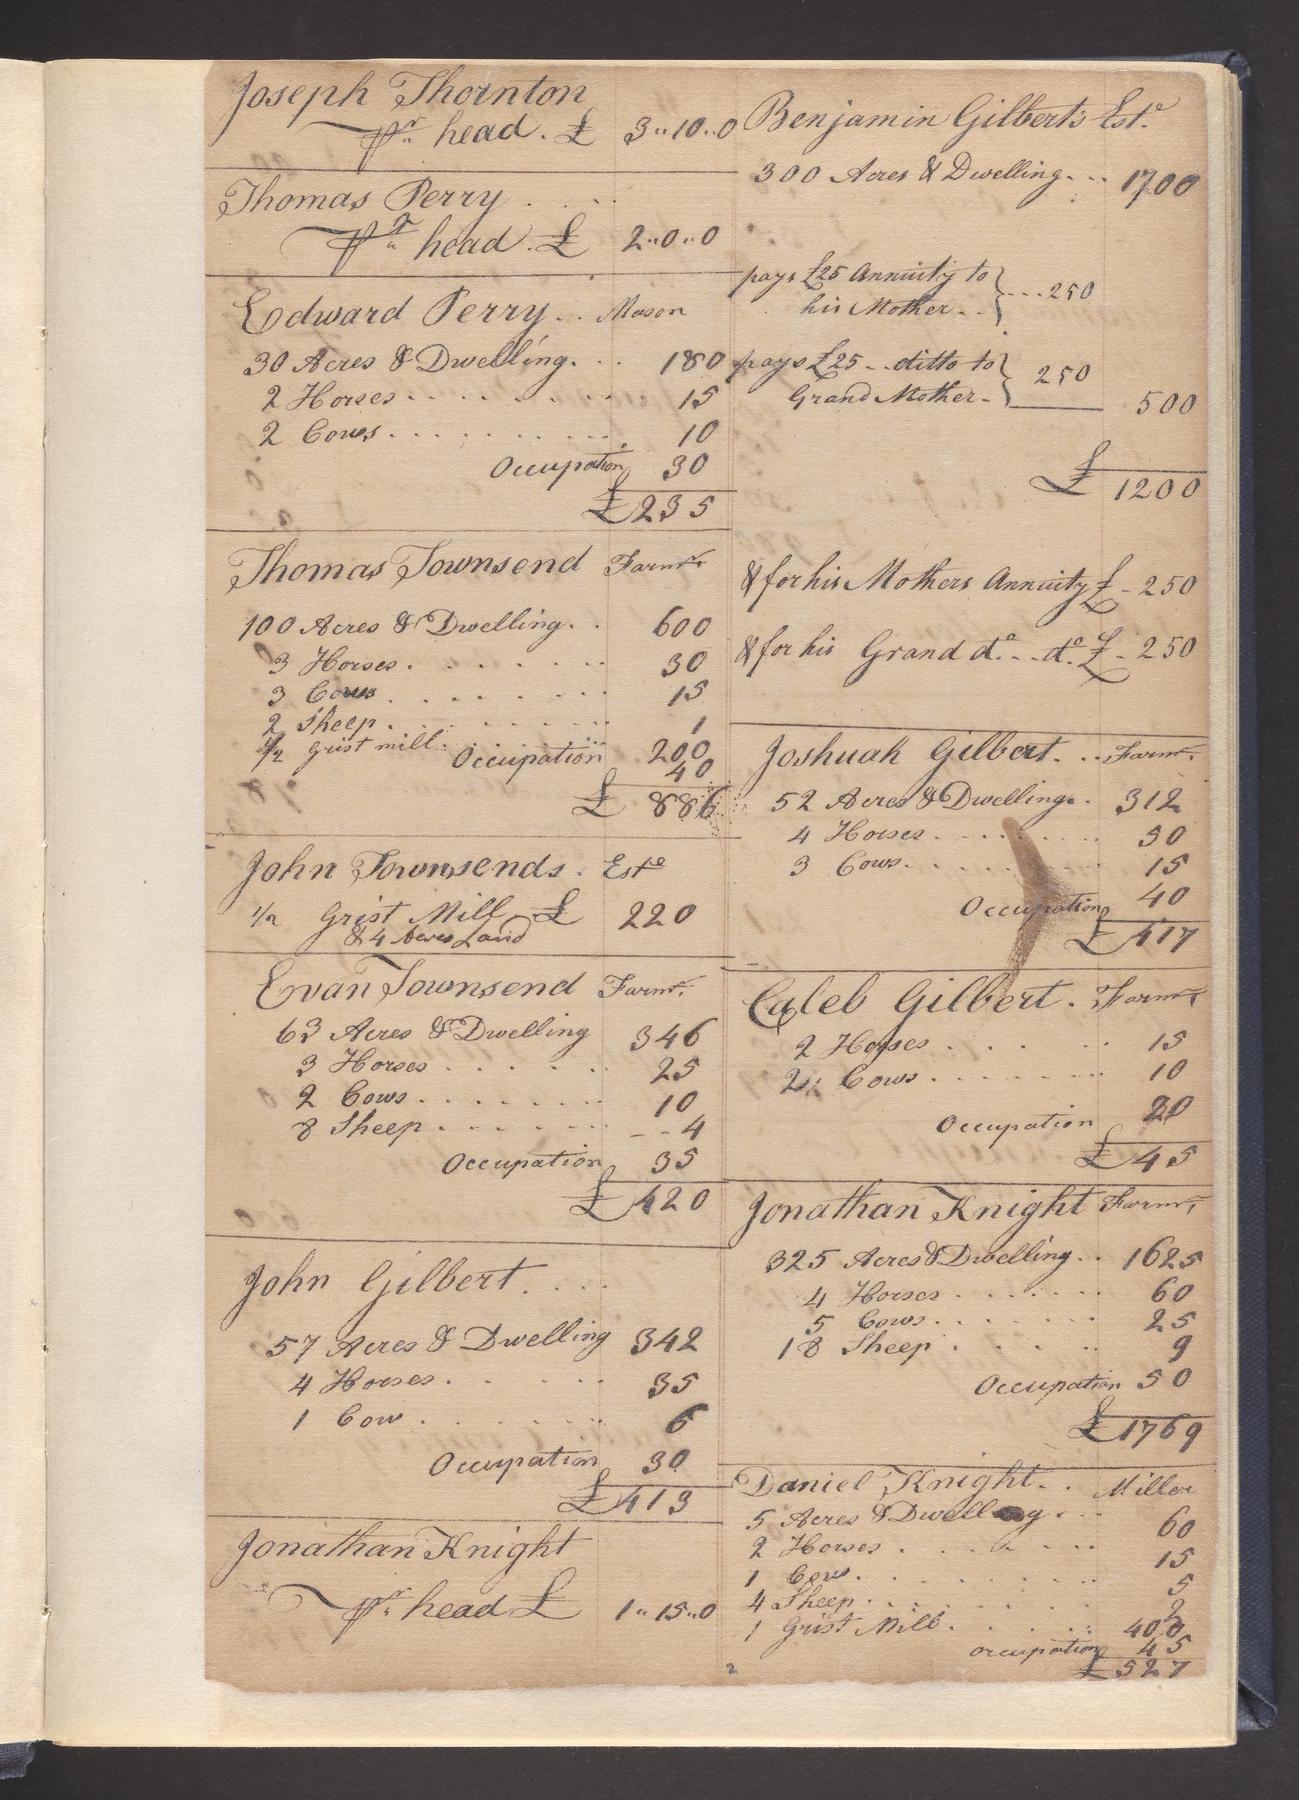 Joseph Thornton
Pr head . £ 3"10"0
Thomas Perry . . . .
Pr head . £ 2"0"0
Edward Perry . . Mason
30 Acres & Dwelling . . . 180
2 Horses . . . . . . . . 15
2 Cows . . . . . . . . . 10
Occupation 30
£ 235
Thomas Townsend Farmr
100 Acres & Dwelling . . 600
3 Horses . . . . . . . 30
3 Cows . . . . . . . 15
2 Sheep . . . . . . . 1
1/2 Grist mill . . . 200
Occupation 40
£ 886
John Townsends . Este
1/2 Grist Mill . £ 220
& 4 Acres Land
Evan Townsend Farmr.
63 Acres & Dwelling 346
3 Horses . . . . . . 25
2 Cows . . . . . . . 10
8 Sheep . . . . . . - - 4
Occupation 35
£ 420
John Gilbert . . . .
57 Acres & Dwelling 342
4 Horses . . . . . 35
1 Cow . . . . . . . 6
Occupation 30
£ 413
Jonathan Knight
Pr head £ 1"15"0
2
Benjamin Gilberts Este.
300 Acres & Dwelling . . . 1700
pays £25 Annuity to
his Mother . . } . . . . 250
pays £25 - - ditto to
Grand Mother - } 250
500
£ 1200
& for his Mothers Annuity £ - 250
& for his Grand do. - - do. £ - 250
Joshuah Gilbert . . . Farmr.
52 Acres & Dwelling . . 312
4 Horses . . . . . . . 50
3 Cows . . . . . . . 15
Occupation 40
£ 417
Caleb Gilbert . Farmr
2 Horses . . . . . 15
2 Cows . . . . . . . 10
Occupation 20
£ 45
Jonathan Knight Farmr,
325 Acres & Dwelling . . 1625
4 Horses . . . . . . . 60
5 Cows . . . . . . . 25
18 Sheep . . . . . 9
Occupation 50
£ 1769
Daniel Knight . . Miller
5 Acres & Dwelling . . . 60
2 Horses . . . . . . 15
1 Cow . . . . . . . . 5
4 Sheep . . . . . . . 2
1 Grist Mill . . . . . 400
occupation 45
£ 527